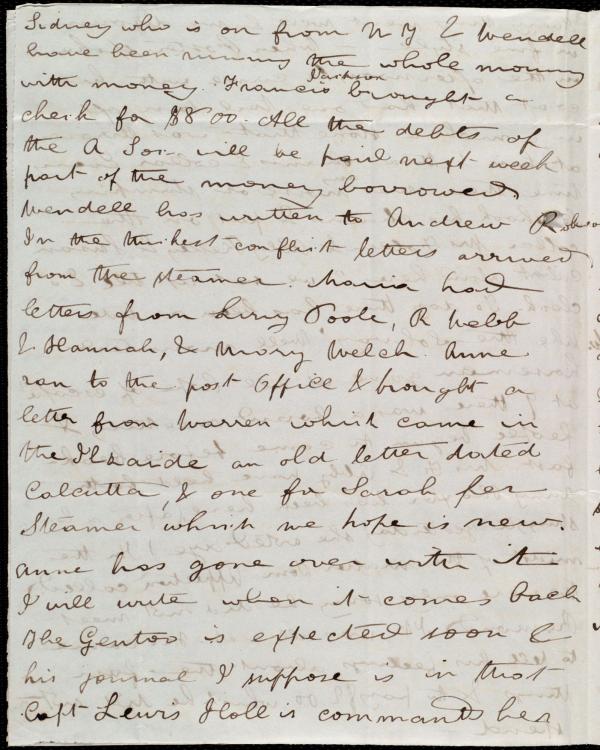 Sidney who is on from N Y & Wendell
have been running the whole morning
with money. Francis Jackson brought a
check for $800. All the debts of
the A Soc. will be paid next week
part of the money borrowed.
Wendell has written to Andrew
In the thickest conflict letters arrived
from the steamer. Maria had
letters from Lizzy Poole, R Webb
& Hannah, & Mary Welch. Anne
ran to the post Office & brought a
letter from Warren which came in
the Ilzaide an old letter dated
Calcutta, & one for Sarah per
Steamer which we hope is new.
Anne has gone over with it
I will write when it comes back
The Gentoo is expected soon &
his journal I suppose is in that
Capt Lewis Holl is commands her